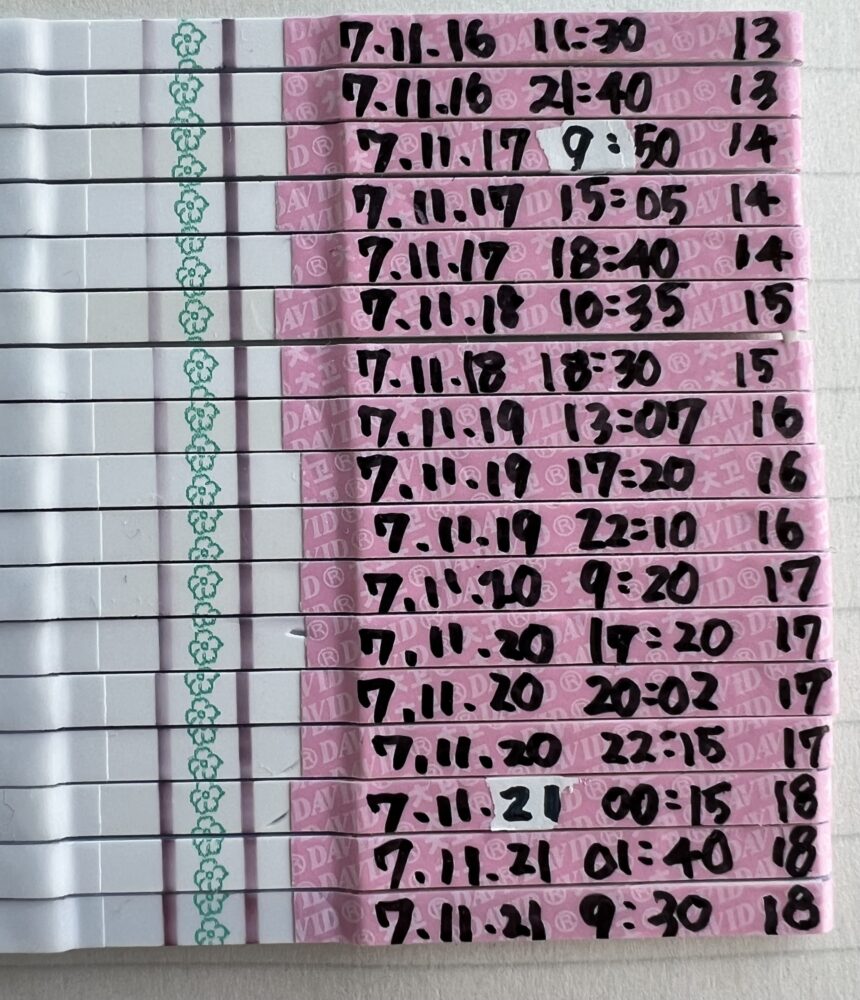 7.11.16 11:30 13
7.11.16 21:40 13
7.11.17 9:50 14
7.11.17 15:05 14
7.11.17 18:40 14
7.11.18 10:35 15
7.11.18 18:30 15
7.11.19 13:07 16
7.11.19 17:20 16
7.11.19 22:10 16
7.11.20 9:20 17
7.11.20 17:20 17
7.11.20 20:02 17
7.11.20 22:15 17
7.11.21 00:15 18
7.11.21 01:40 18
7.11.21 9:30 18